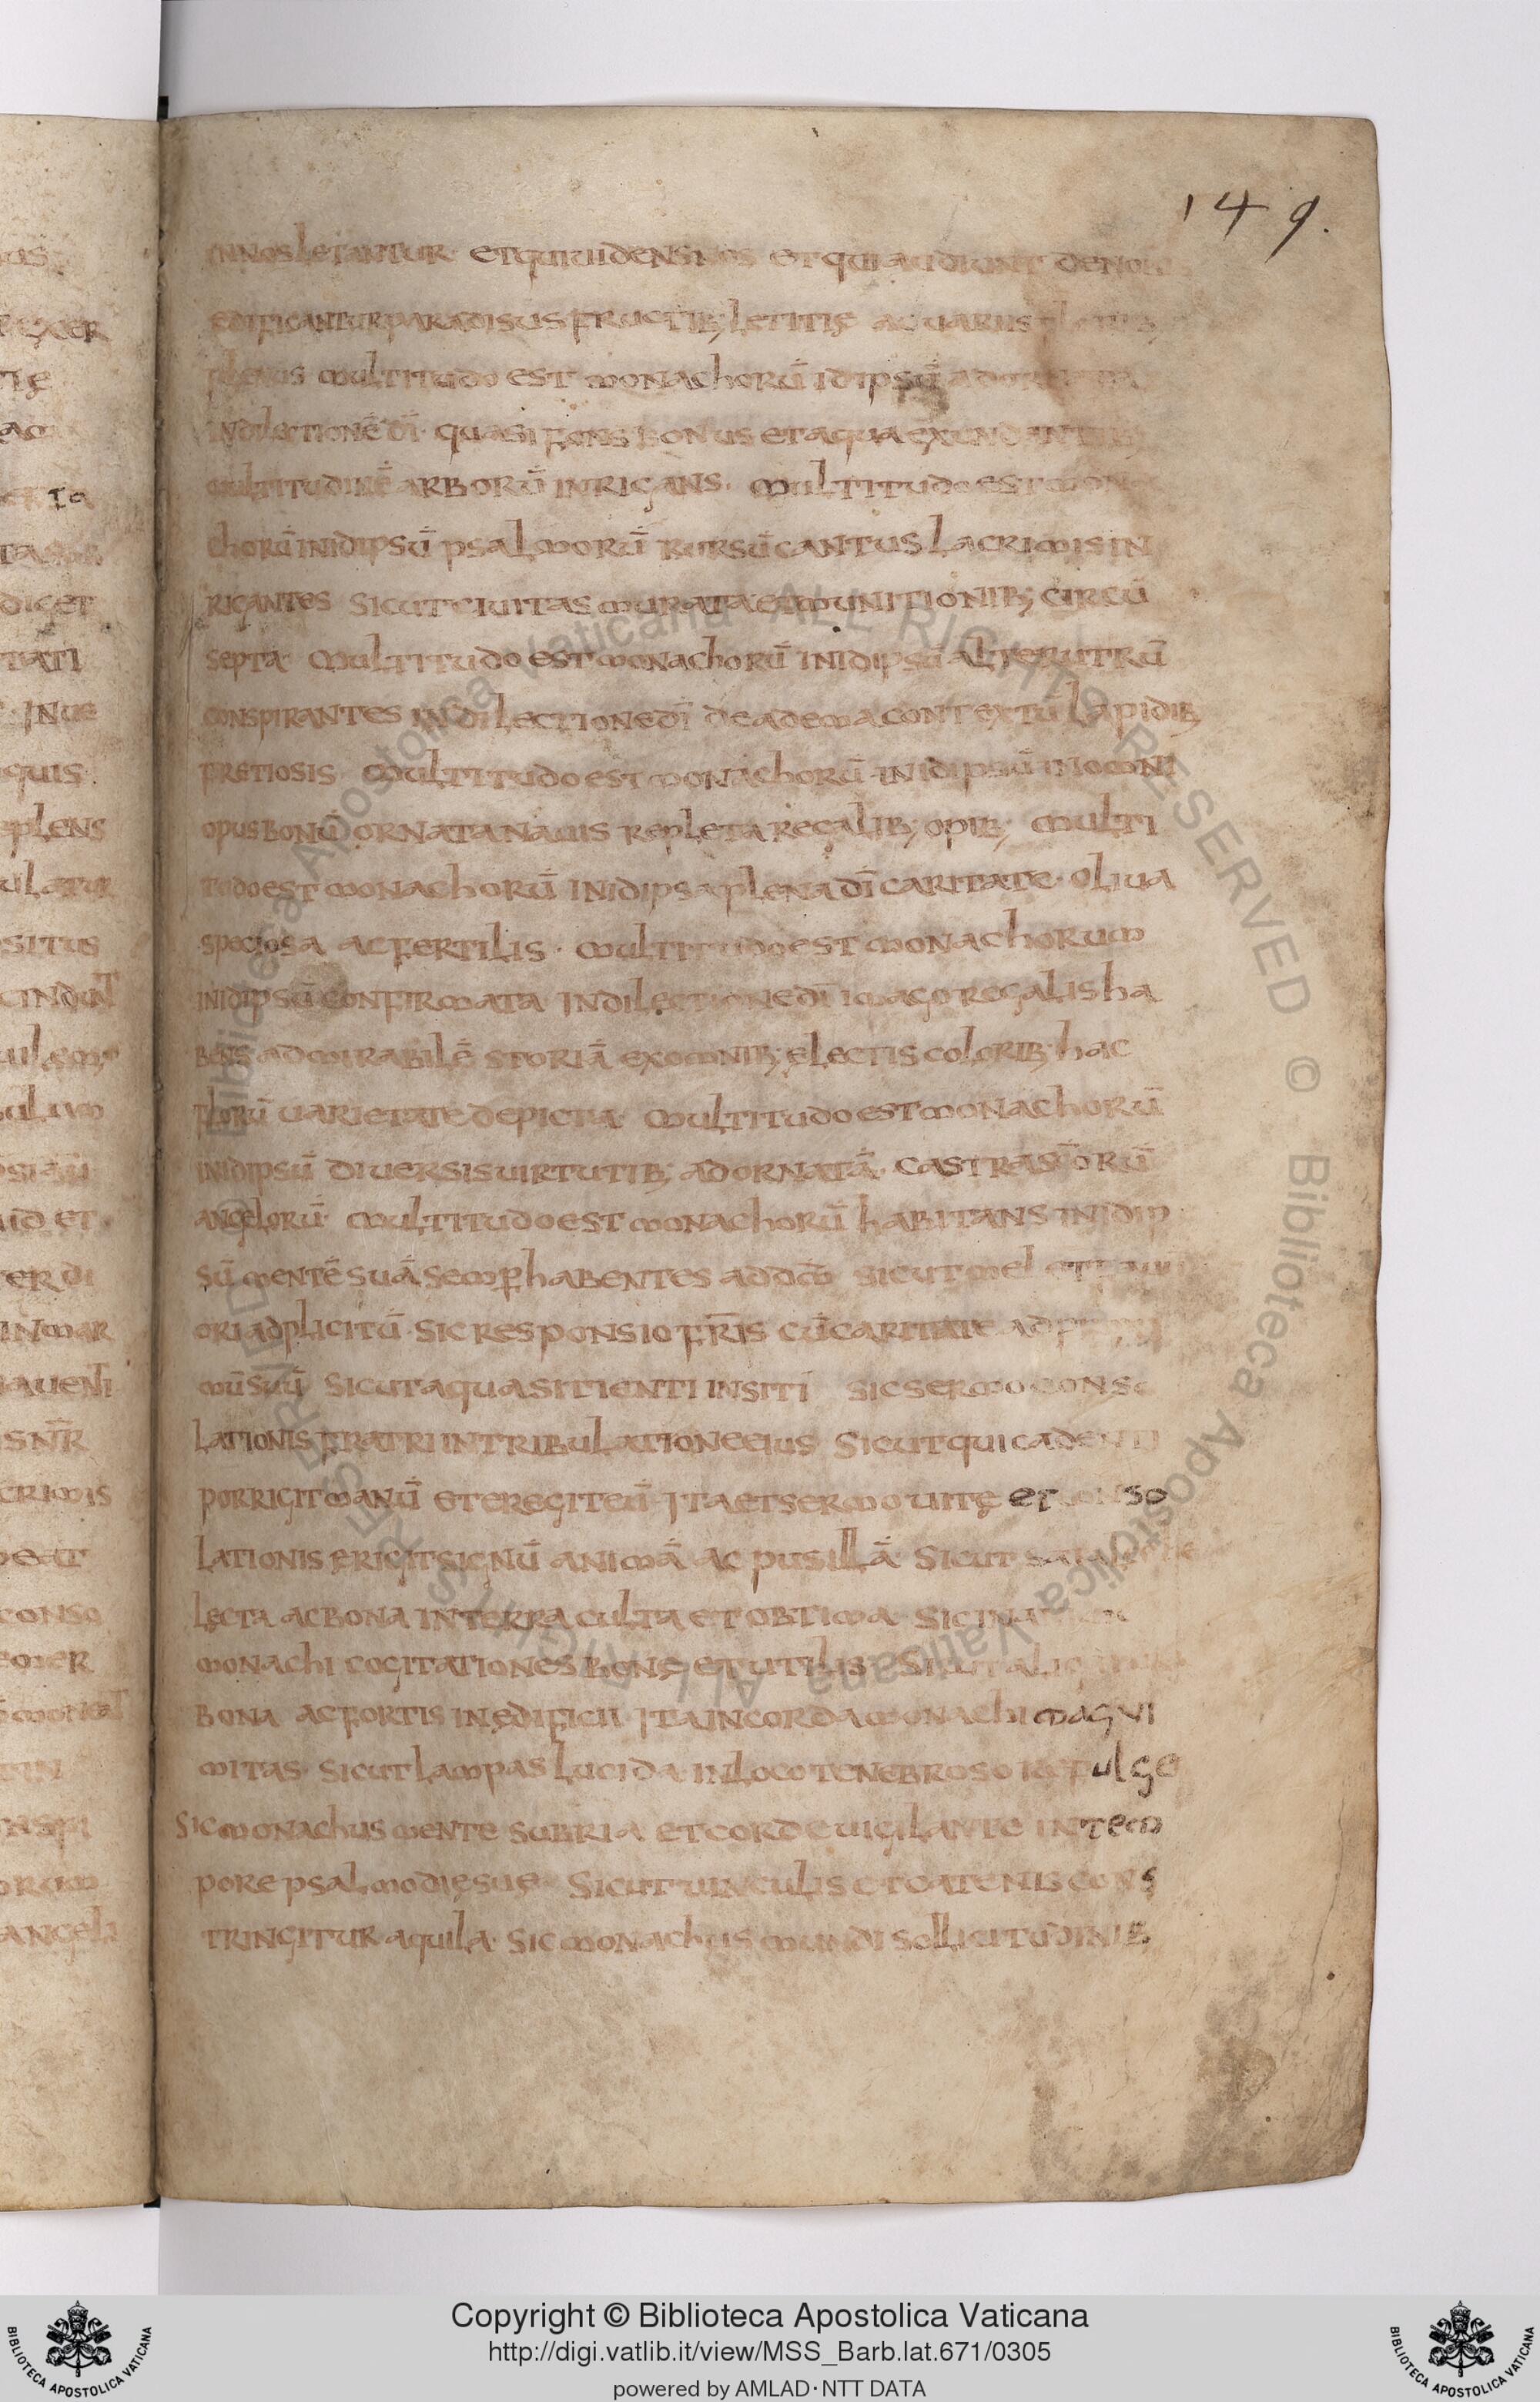 149.
INNOS LETANTUR · ET QUI UIDENS NOS ET QUI AUDIUNT DE NOBIS
EDIFICANTUR PARADISUS FRUCTIB; LETITIĘ AC UARIIS
PLENUS MULTITUDO EST MONACHORŪ IDIPSŪ
IN DILECTIONĒ DĪ · QUASI FONS BONUS ET AQUA
MULTITUDINĒ ARBORŪ INRIGANS · MULTITUDO EST MONA
CHORŪ IN IDIPSŪ PSALMORŪ RURSŪ CANTUS LACRIMIS IN
RIGANTES SICUT CIUITAS MURATA ET MUNITIONIB; CIRCŪ
SEPTA · MULTITUDO EST MONACHORŪ IN IDIPSŪ ALTERUTRŪ
CONSPIRANTES IN DILECTIONE DĪ DEADEMA CONTEXTŪ LAPIDIB;
PRETIOSIS MULTITUDO EST MONACHORŪ IN IDIPSŪ IN OMNI
OPUS BONŪ ORNATA NAUIS REPLETA REGALIB; OPIB; MULTI
TUDO EST MONACHORŪ IN IDIPSA PLENA DĪ CARITATE · OLIUA
SPECIOSA AC FERTILIS · MULTITUDO EST MONACHORUM
IN IDIPSŪ CONFIRMATA IN DILECTIONE DĪ IMAGO REGALIS HA
BENS ADMIRABILĒ STORIĀ EX OMNIB; ELECTIS COLORIB; HAC
FLORŪ UARIETATE DEPICTA · MULTITUDO EST MONACHORŪ
IN IDIPSŪ DIUERSIS UIRTUTIB; ADORNATĀ · CASTRA SC̄ORŪ
ANGELORŪ · MULTITUDO EST MONACHORŪ HABITANS IN IDIP
SŪ MENTĒ SUĀ SEMP̄ HABENTES AD DM̄ SICUT MEL
ORI ADPLICITŪ · SIC RESPONSIO FR̄IS CŪ CARITATE AD
MŪ SUŪ SICUT AQUA SITIENTI IN SITI SIC SERMO CONSO
LATIONIS FRATRI IN TRIBULATIONE EIUS SICUT QUI CADENTI
PORRIGIT MANŪ ET EREGIT EŪ · ITA ET SERMO UITĘ ET CONSO
LATIONIS ERIGIT SIGNŪ ANIMĀ AC PUSILLĀ · SICUT
LECTA AC BONA IN TERRA CULTA ET OBTIMA · SIC IN
MONACHI COGITATIONES BONĘ ET UTILIS · SICUT
BONA AC FORTIS IN ĘDIFICII · ITA IN CORDA MONACHI MAGNI
MITAS · SICUT LAMPAS LUCIDA IN LOCO TENEBROSO REFULGE
SIC MONACHUS MENTE SUBRIA ET CORDE UIGILANTE IN TEM
PORE PSALMODIĘ SUĘ · SICUT UINCULIS ET CATENIS CONS
TRINGITUR AQUILA · SIC MONACHUS MUNDI SOLLICITUDINIB
Copyright © Biblioteca Apostolica Vaticana
http://digi.vatlib.it/view/MSS_Barb.lat.671/0305
powered by AMLAD·NTT DATA